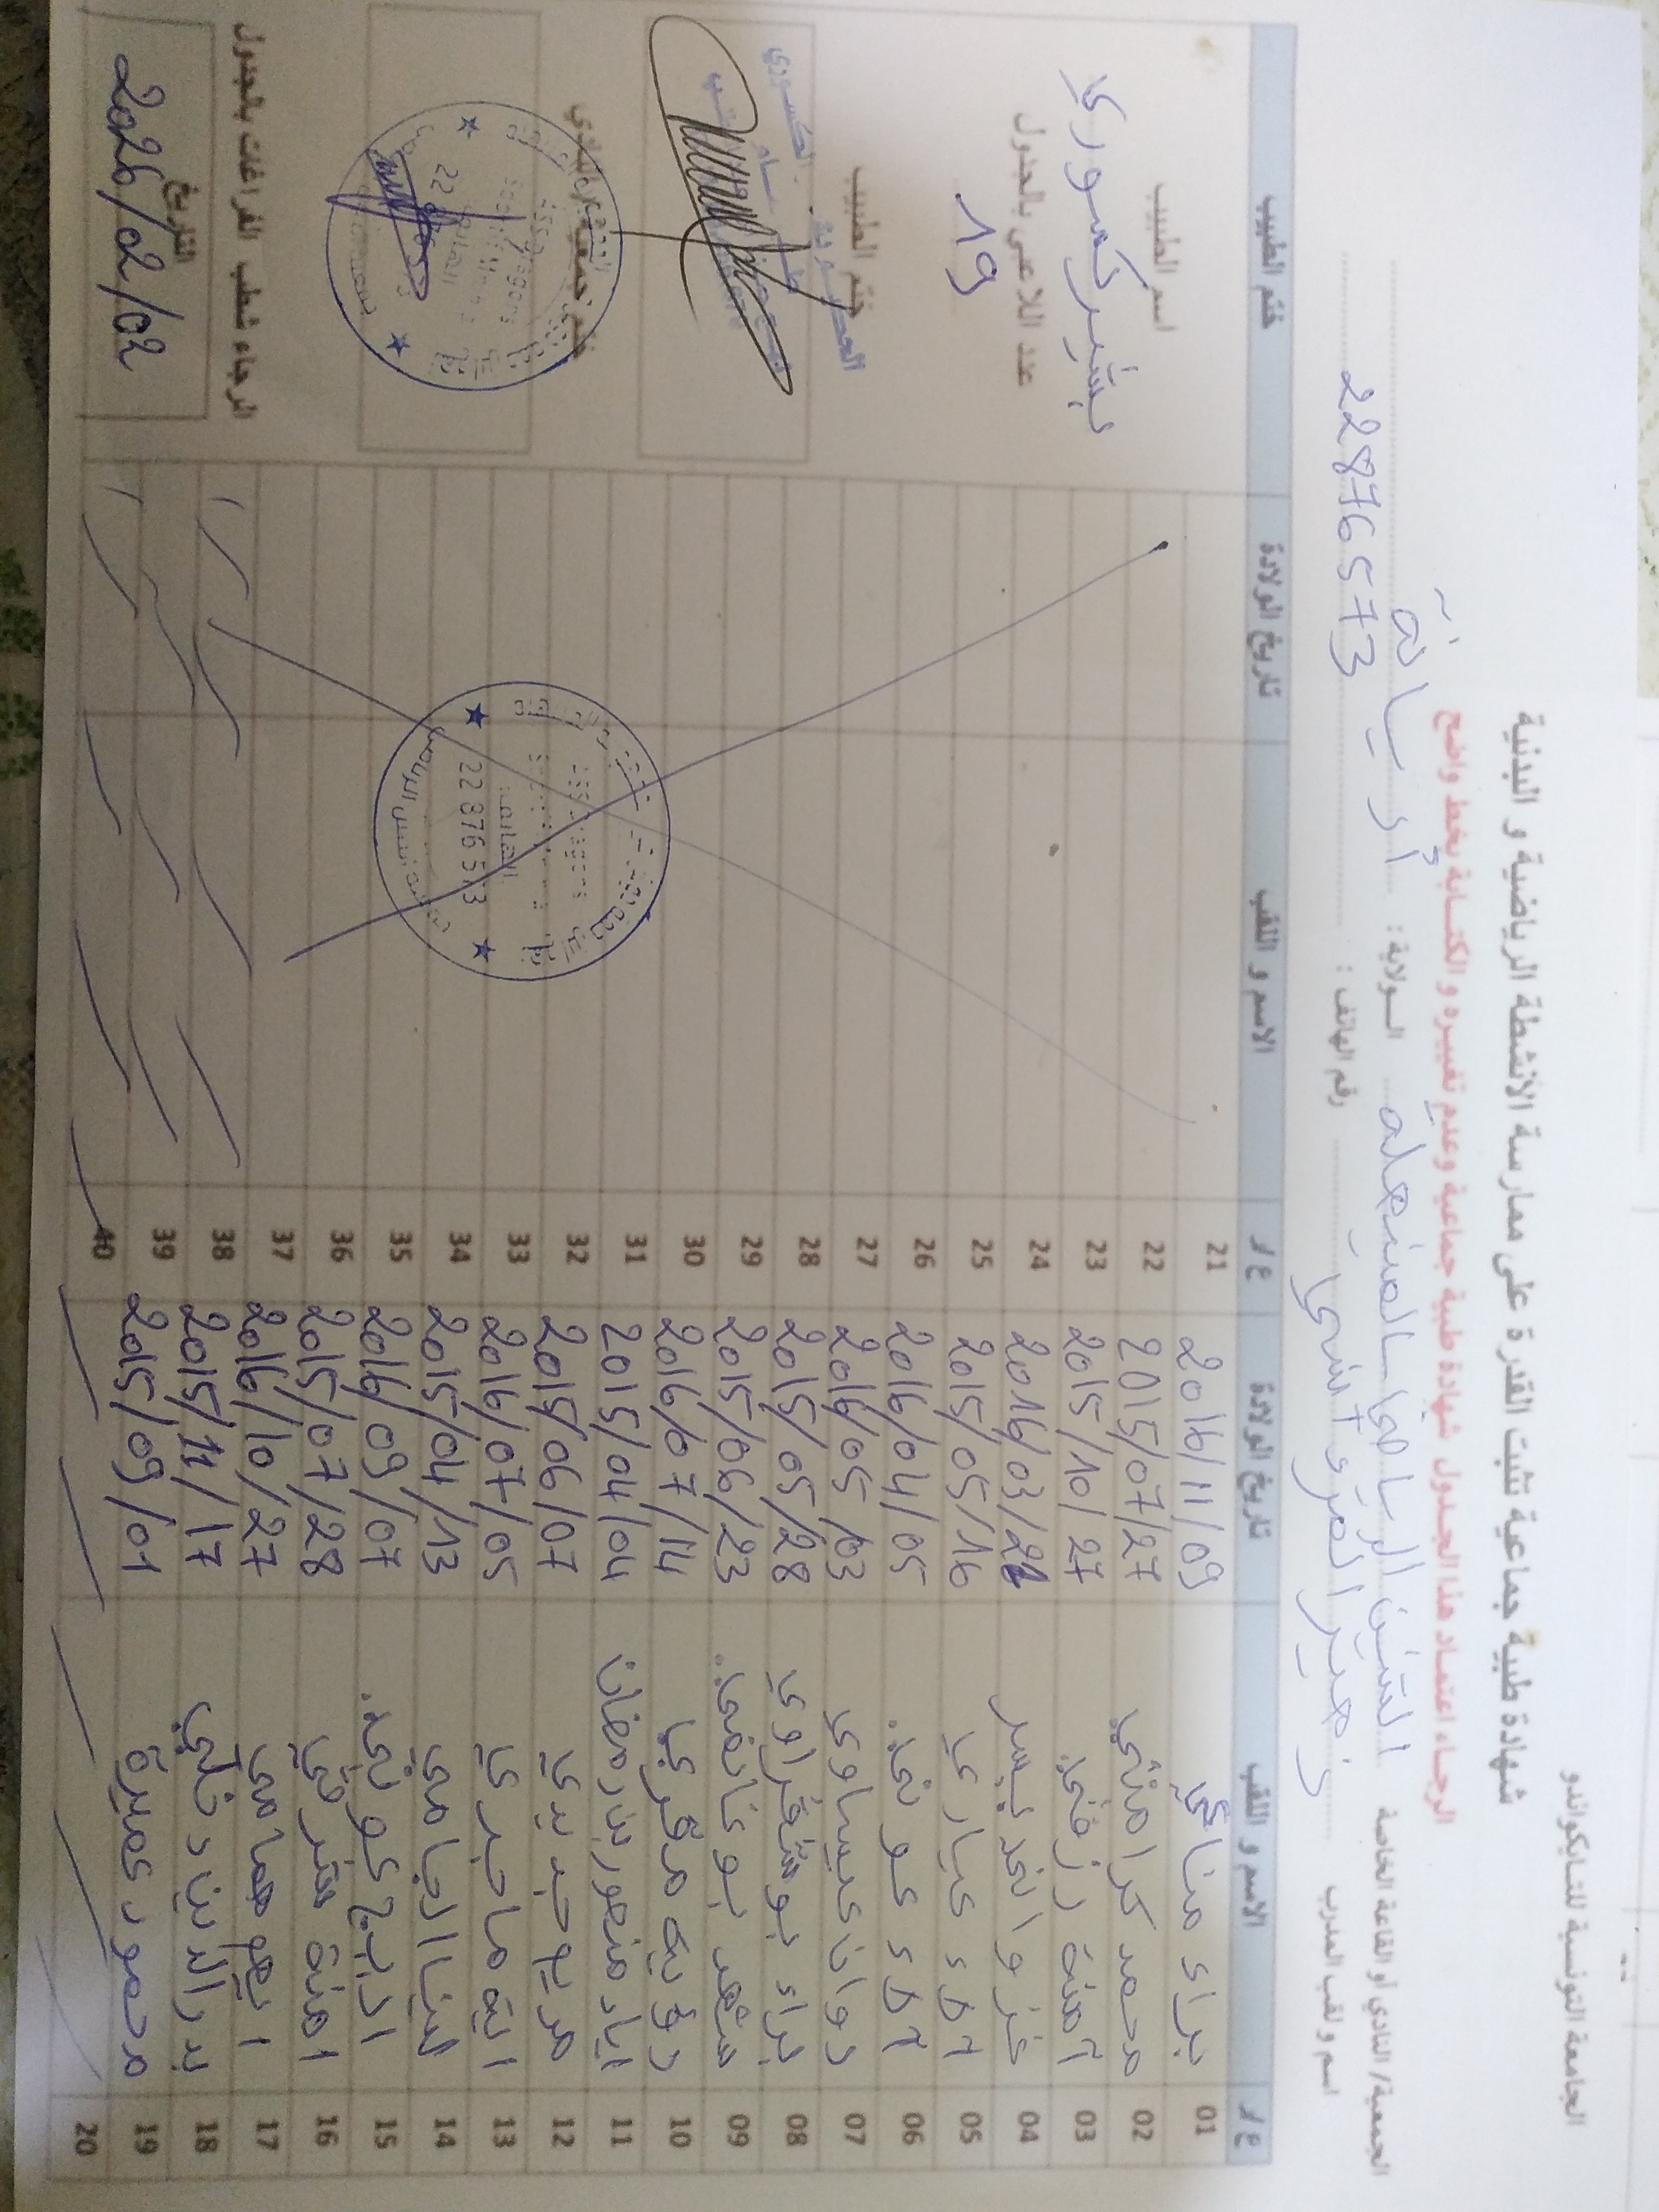 الجامعة التونسية للتايكواندو
شهادة طبية جماعية تثبت القدرة على ممارسة الأنشطة الرياضية و البدنية
الرجاء اعتماد هذا الجدول شهادة طبية جماعية وعدم تغييره و الكتابة بخط واضح
الجمعية/ النادي أو القاعة الخاصة التنين الرياضي بالمنيهلة الولاية : أريانة
اسم و لقب المدرب زهير النصري رقم الهاتف : 22876573
ع / الاسم و اللقب تاريخ الولادة ع / الاسم و اللقب تاريخ الولادة ختم الطبيب
01 براء مناعي 2016/11/09 21
02 محمد كرامتي 2015/07/27 22
03 آمنة رزقي 2015/10/27 23
04 2016/03/22 24
05 آلاء عياري 2015/05/16 25
06 آلاء عوني 2016/04/05 26
07 روانا عيساوي 2016/05/03 27
08 براء بوشقراوي 2015/05/28 28
09 شهد بوغانمي 2015/06/23 29
10 2016/07/14 30
11 اياد منصور بن رمضان 2015/04/04 31
12 مريم حيدري 2015/06/07 32
13 اية ماجري 2016/07/05 33
14 لينا الجامي 2015/04/13 34
15 اريج عوني 2016/09/07 35
16 امنة شرقي 2015/07/28 36
17 ايهم همامي 2016/10/27 37
18 بدر الدين 2015/11/17 38
19 محمود عميرة 2015/09/01 39
20 40
اسم الطبيب
بشير كسوري
عدد اللاعبي بالجدول
19
ختم الطبيب
ختم جمعية/النادي
22 876 573
الرجاء شطب الفراغات بالجدول
التاريخ
2026/02/02